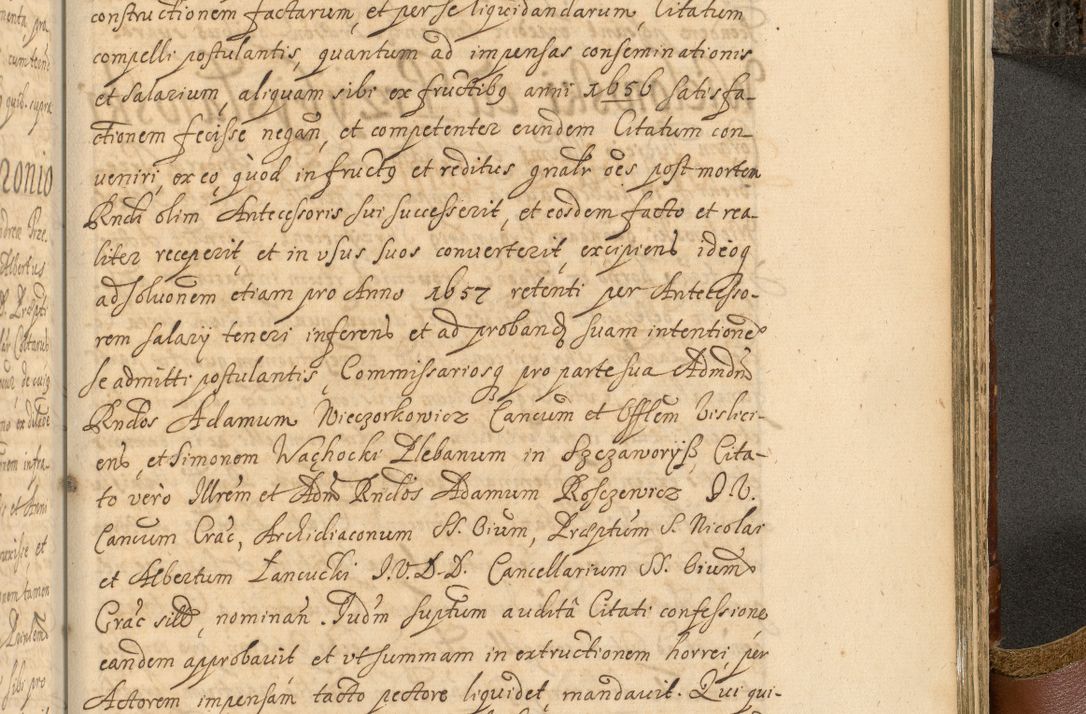 constructionem factarum, et per se liquidandarum, Citatum
compelli postulantis, quantum ad impensas conseminationis
et salarium, aliquam sibi ex fructibg anni 1656 satisfa-
ctionem fecisse negan, et competenter eundem Citatum con-
veniri, ex eo, quod in fructg et reditus gnalr oẽs post mortem
Rndi olim Antecessoris sui successerit, et eosdem facto et rea-
liter receperit, et in usus suos converterit, excipiens ideoq
ad solvonem etiam pro Anno 1657 retenti per Antecesso-
rem salarÿ teneri inferens et ad proband suam intentione
se admitti postulantis, Commissariosq pro parte sua Admdm
Rndos Adamum Wieczorkowicz Cancum et Offlem Vislici-
ens, et Simonem Wąchocki Plebanum in Szczaworÿß, Cita-
to vero Illrem et Adm Rndos Adamum Rosczewicz J.V.
Cancum Crac, Archidiaconum SS. Oium, Præptum S. Nicolai
et Albertum Łancucki J.V.D.D. Cancellarium SS. Oium
Crac sild, nominan. Judm suptum audita Citati confessione
eandem approbavit et ut summam in extructionem horrei per
Actorem impensam tacto pectore liquidet, mandavit. Qui qui-